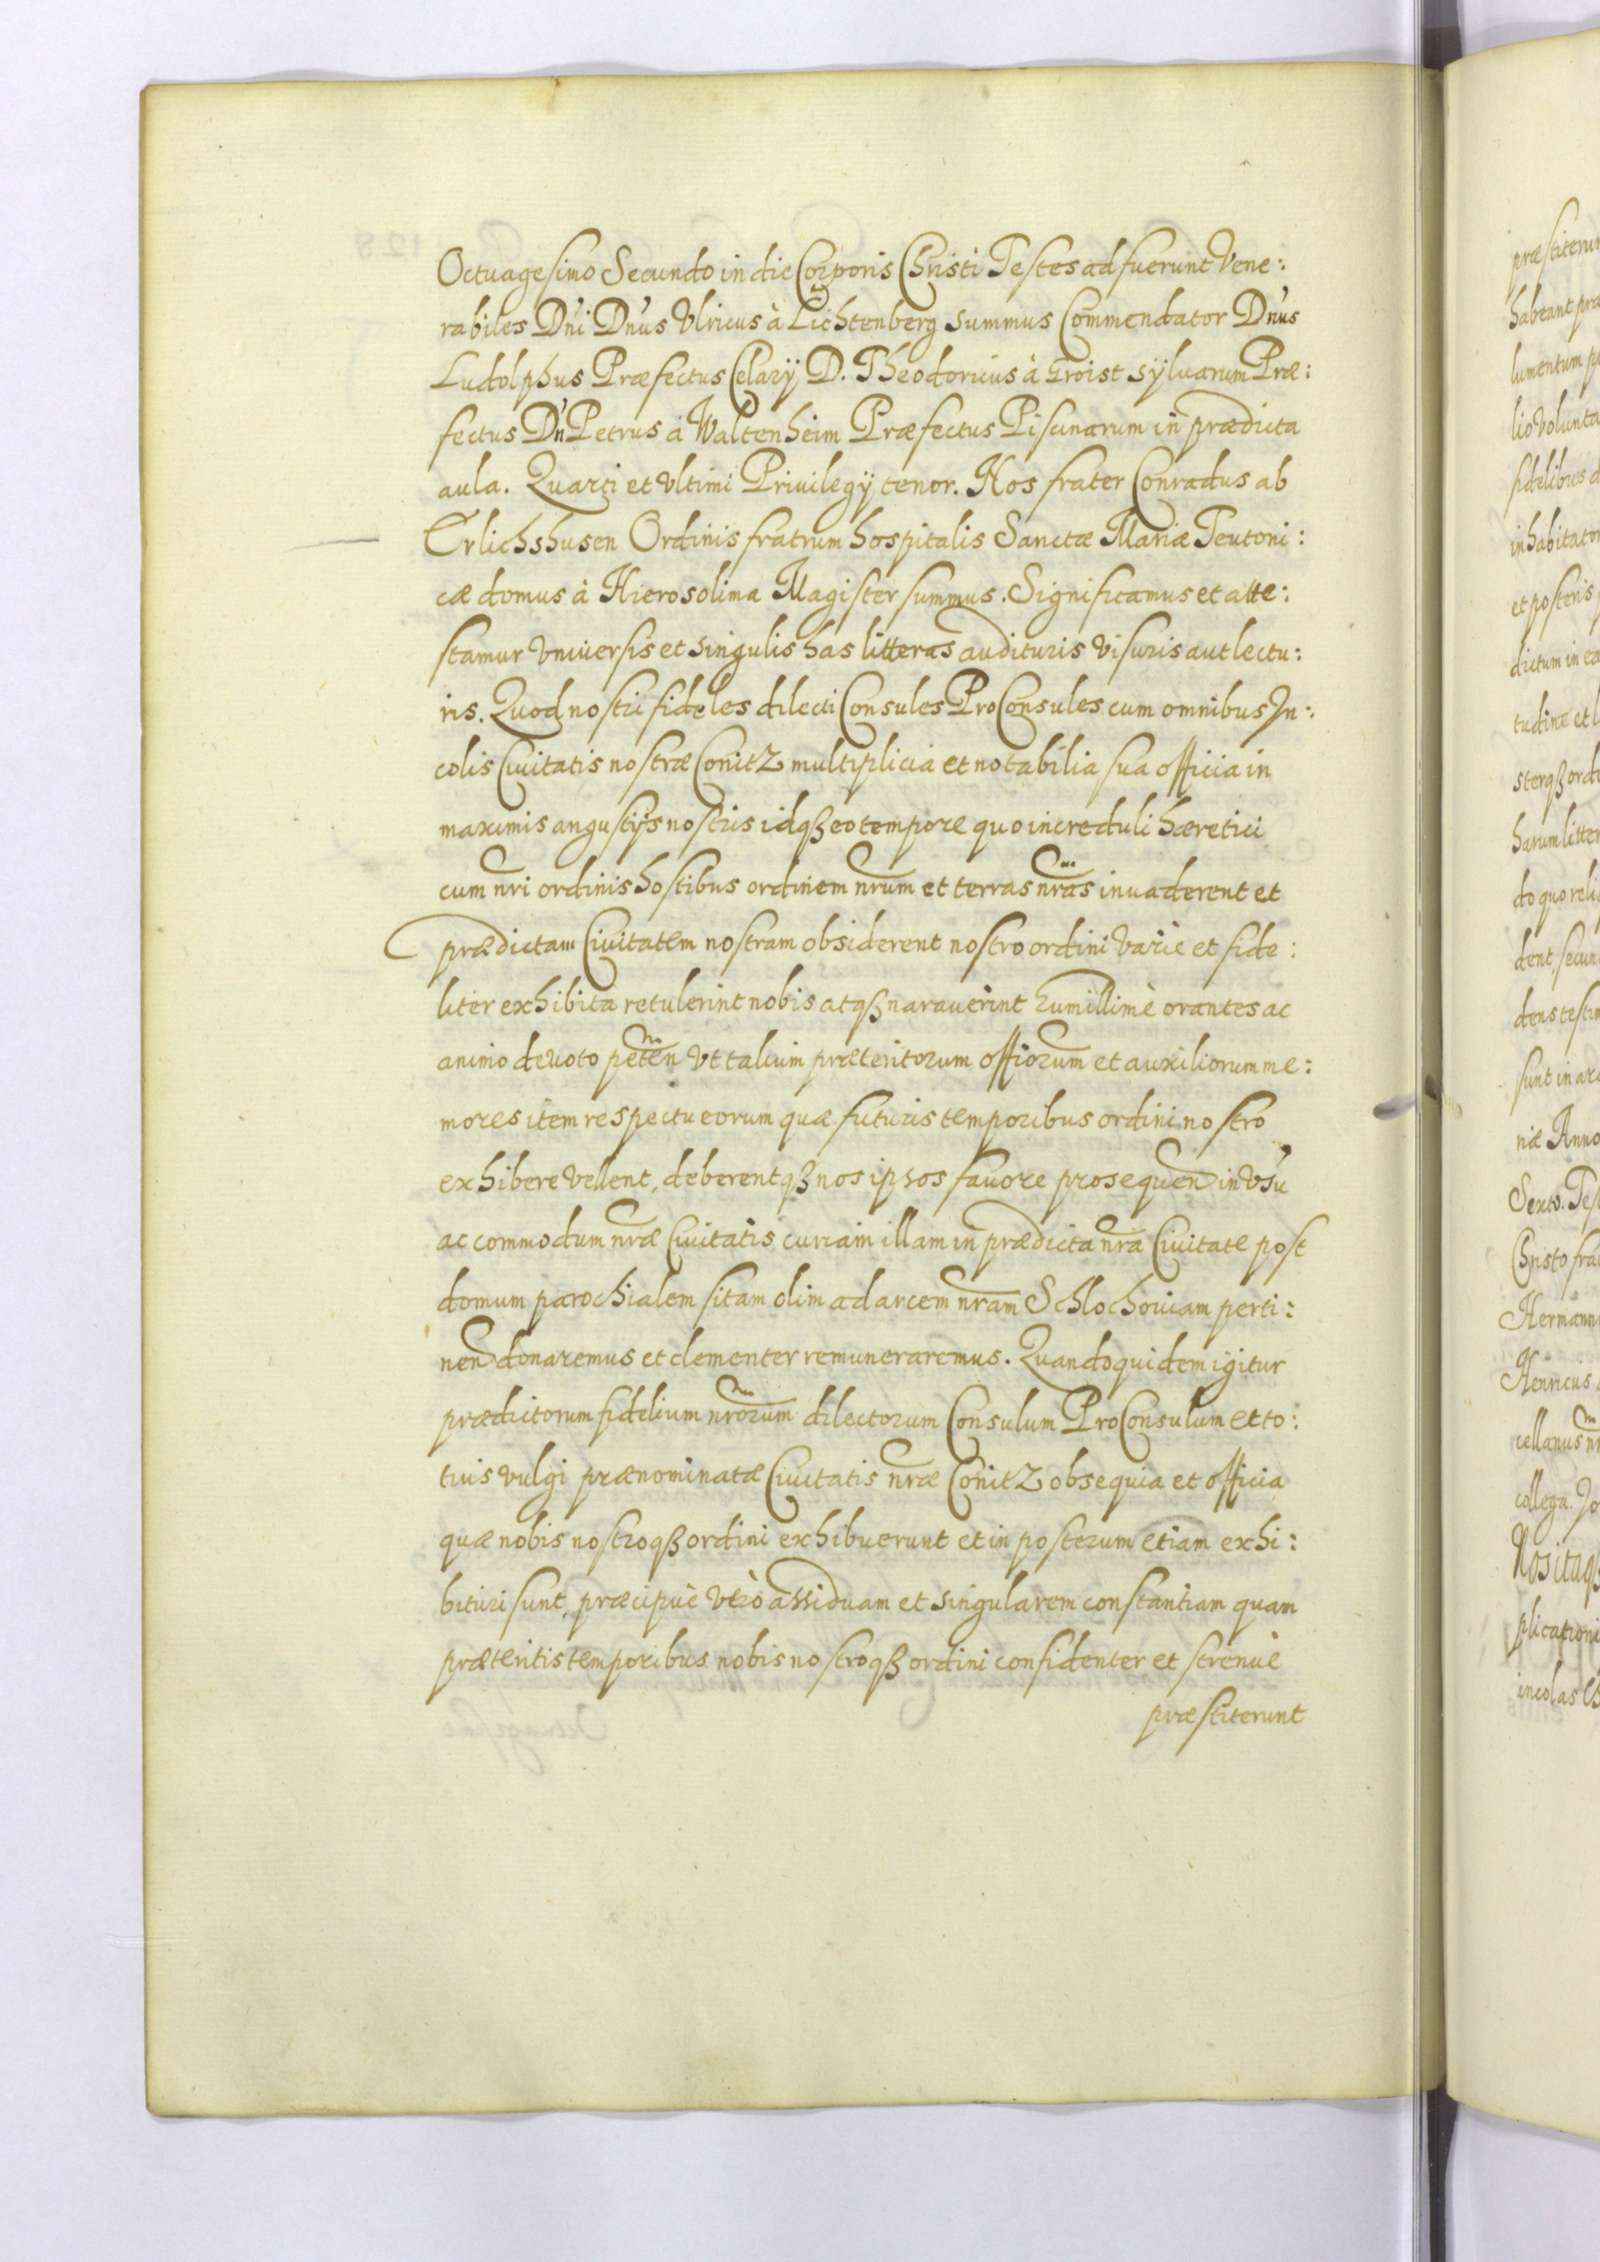 Octuagesimo Secundo in die Corporis Christi Testes adfuerunt Vene:
rabiles Dn'i Dn'us Ulricus à Lichtenberg summus Commendator Dn'us
Ludolphus Præfectus Celarÿ D. Theodoricus à Groist sÿlvarum Præ:
fectus Dn Petrus à Waltenheim Præfectus Piscinarum in prædicta
aula. Quarti et Vltimi Privilegÿ tenor. Nos frater Conradus ab
Erlichshusen Ordinis fratrum hospitalis Sanctæ Mariæ Teutoni:
cæ domus à Hierosolima Magister summus. Significamus et atte:
stamur Vniuersis et singulis has litteras audituris visuris aut lectu:
ris. Quod nostri fideles dilecti Consules ProConsules cum omnibus In:
colis Civitatis nostræ Conitz multiplicia et notabilia sua officia in
maximis angustijs nostris idqß eo tempore quo increduli hæretici
cum nri ordinis hostibus ordinem nrum et terras nras invaderent et
prædictam Civitatem nostram obsiderent nostro ordini varie et fide:
liter exhibita retulerint nobis atqß narauerint humillimè orantes ac
animo devoto peten Vt talium præteritorum offiorum et auxiliorum me:
mores item respectu eorum quæ futuris temporibus ordini nostro
exhibere vellent, deberentqß nos ipsos favore prosequen in Vsu
ac commodum nræ Civitatis curiam illam in prædicta nra Civitate post
domum parochialem sitam olim ad arcem nram Schlochouiam perti:
nen donaremus et clementer remuneraremus. Quandoquidem igitur
prædictorum fidelium nrorum dilectorum Consulum ProConsulum et to:
tius vulgi prænominatæ Civitatis nræ Conitz obsequia et officia
quæ nobis nostroqß ordini exhibuerunt et in posterum etiam exhi:
bituri sunt, præcipuè verò assiduam et singularem constantiam quam
præteritis temporibus nobis nostroqß ordini confidenter et strenuè
præstiterunt